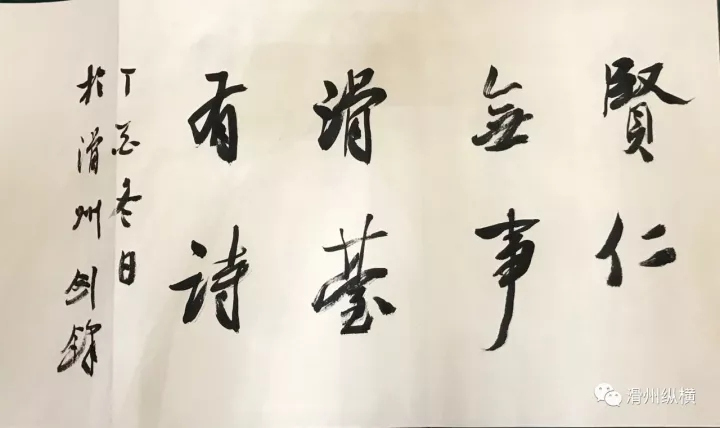 賢仁
無事
滑臺
有詩
丁酉冬日
於滑州劍鋒
滑州纵横